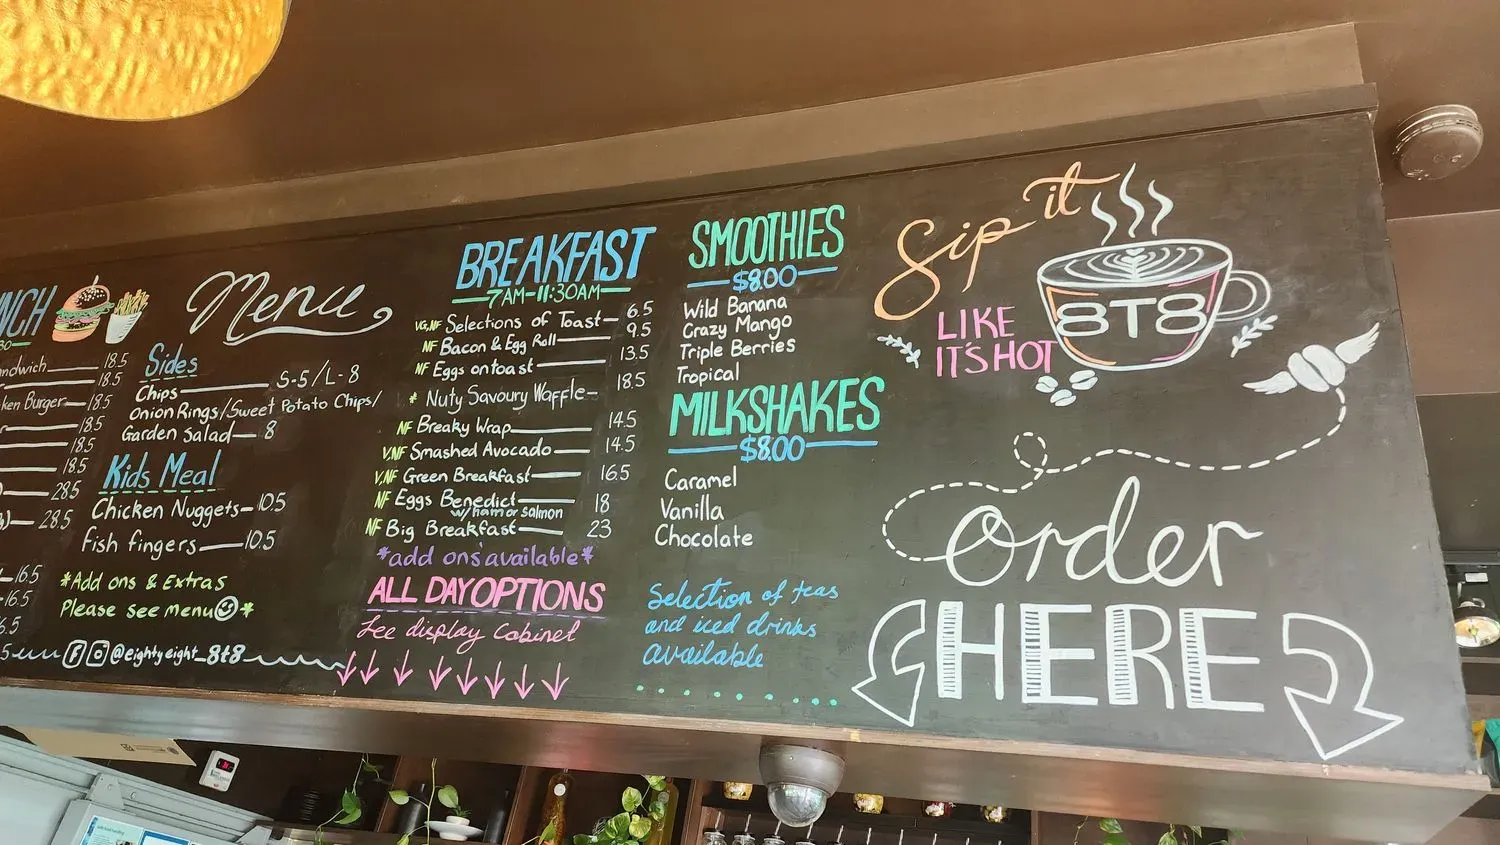 NCH
30
ndwich 18.5
18.5
ken Burger 18.5
18.5
18.5
18.5
28.5
28.5
16.5
16.5
6.5
Menu
Sides
Chips S-5/L-8
Onion Rings/Sweet Potato Chips/
Garden Salad 8
Kids Meal
Chicken Nuggets 10.5
Fish fingers 10.5
*Add ons & Extras
Please see menu *
@eightyeight_8t8
BREAKFAST
7AM-11:30AM
VG,NF Selections of Toast 6.5
NF Bacon & Egg Roll 9.5
NF Eggs on toast 13.5
* Nuty Savoury Waffle 18.5
NF Breaky Wrap 14.5
V,NF Smashed Avocado 14.5
V,NF Green Breakfast 16.5
NF Eggs Benedict 18
w/ham or salmon
NF Big Breakfast 23
*add ons available*
ALL DAY OPTIONS
See display Cabinet
SMOOTHIES
$8.00
Wild Banana
Crazy Mango
Triple Berries
Tropical
MILKSHAKES
$8.00
Caramel
Vanilla
Chocolate
Selection of teas
and iced drinks
available
Sip it
LIKE
IT'S HOT
8T8
Order
HERE